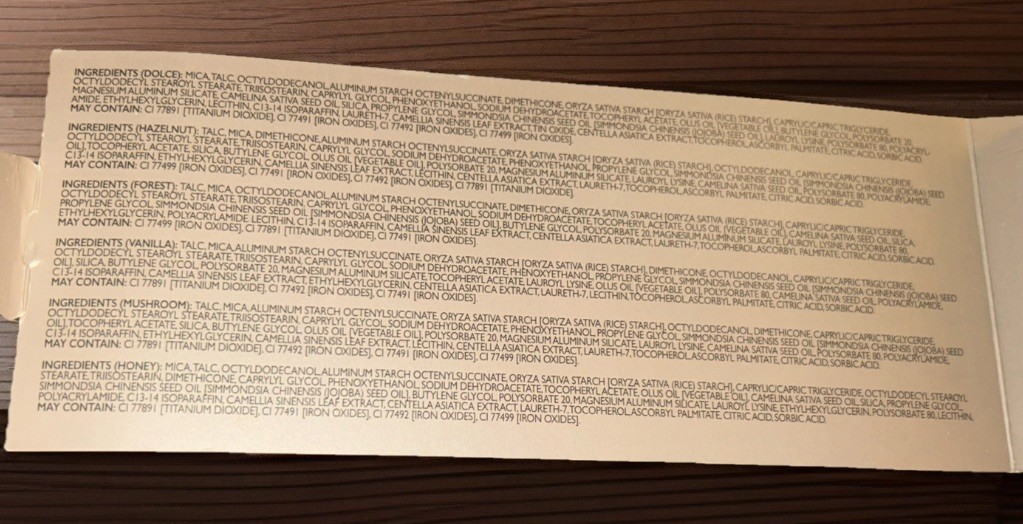 INGREDIENTS (DOLCE): MICA, TALC, OCTYLDODECANOL, ALUMINUM STARCH OCTENYLSUCCINATE, DIMETHICONE, ORYZA SATIVA STARCH [ORYZA SATIVA (RICE) STARCH], CAPRYLIC/CAPRIC TRIGLYCERIDE,
OCTYLDODECYL STEAROYL STEARATE, TRIISOSTEARIN, CAPRYLYL GLYCOL, PHENOXYETHANOL, SODIUM DEHYDROACETATE, TOCOPHERYL ACETATE, OLUS OIL [VEGETABLE OIL], BUTYLENE GLYCOL, POLYSORBATE 20,
MAGNESIUM ALUMINUM SILICATE, CAMELINA SATIVA SEED OIL, SILICA, PROPYLENE GLYCOL, SIMMONDSIA CHINENSIS SEED OIL [SIMMONDSIA CHINENSIS (JOJOBA) SEED OIL], LAUROYL LYSINE, POLYSORBATE 80, POLYACRYL-
AMIDE, ETHYLHEXYLGLYCERIN, LECITHIN, C13-14 ISOPARAFFIN, LAURETH-7, CAMELLIA SINENSIS LEAF EXTRACT, TIN OXIDE, CENTELLA ASIATICA EXTRACT, TOCOPHEROL, ASCORBYL PALMITATE, CITRIC ACID, SORBIC ACID.
MAY CONTAIN: CI 77891 [TITANIUM DIOXIDE], CI 77491 [IRON OXIDES], CI 77492 [IRON OXIDES], CI 77499 [IRON OXIDES].
INGREDIENTS (HAZELNUT): TALC, MICA, DIMETHICONE, ALUMINUM STARCH OCTENYLSUCCINATE, ORYZA SATIVA STARCH [ORYZA SATIVA (RICE) STARCH], OCTYLDODECANOL, CAPRYLIC/CAPRIC TRIGLYCERIDE,
OCTYLDODECYL STEAROYL STEARATE, TRIISOSTEARIN, CAPRYLYL GLYCOL, SODIUM DEHYDROACETATE, PHENOXYETHANOL, PROPYLENE GLYCOL, SIMMONDSIA CHINENSIS SEED OIL [SIMMONDSIA CHINENSIS (JOJOBA) SEED
OIL], TOCOPHERYL ACETATE, SILICA, BUTYLENE GLYCOL, OLUS OIL [VEGETABLE OIL], POLYSORBATE 20, MAGNESIUM ALUMINUM SILICATE, LAUROYL LYSINE, CAMELINA SATIVA SEED OIL, POLYSORBATE 80, POLYACRYLAMIDE,
C13-14 ISOPARAFFIN, ETHYLHEXYLGLYCERIN, CAMELLIA SINENSIS LEAF EXTRACT, LECITHIN, CENTELLA ASIATICA EXTRACT, LAURETH-7, TOCOPHEROL, ASCORBYL PALMITATE, CITRIC ACID, SORBIC ACID.
MAY CONTAIN: CI 77499 [IRON OXIDES], CI 77491 [IRON OXIDES], CI 77492 [IRON OXIDES], CI 77891 [TITANIUM DIOXIDE].
INGREDIENTS (FOREST): TALC, MICA, OCTYLDODECANOL, ALUMINUM STARCH OCTENYLSUCCINATE, DIMETHICONE, ORYZA SATIVA STARCH [ORYZA SATIVA (RICE) STARCH], CAPRYLIC/CAPRIC TRIGLYCERIDE,
OCTYLDODECYL STEAROYL STEARATE, TRIISOSTEARIN, CAPRYLYL GLYCOL, PHENOXYETHANOL, SODIUM DEHYDROACETATE, TOCOPHERYL ACETATE, OLUS OIL [VEGETABLE OIL], CAMELINA SATIVA SEED OIL, SILICA,
PROPYLENE GLYCOL, SIMMONDSIA CHINENSIS SEED OIL [SIMMONDSIA CHINENSIS (JOJOBA) SEED OIL], BUTYLENE GLYCOL, POLYSORBATE 20, MAGNESIUM ALUMINUM SILICATE, LAUROYL LYSINE, POLYSORBATE 80,
ETHYLHEXYLGLYCERIN, POLYACRYLAMIDE, LECITHIN, C13-14 ISOPARAFFIN, CAMELLIA SINENSIS LEAF EXTRACT, CENTELLA ASIATICA EXTRACT, LAURETH-7, TOCOPHEROL, ASCORBYL PALMITATE, CITRIC ACID, SORBIC ACID.
MAY CONTAIN: CI 77499 [IRON OXIDES], CI 77891 [TITANIUM DIOXIDE], CI 77491 [IRON OXIDES].
INGREDIENTS (VANILLA): TALC, MICA, ALUMINUM STARCH OCTENYLSUCCINATE, ORYZA SATIVA STARCH [ORYZA SATIVA (RICE) STARCH], DIMETHICONE, OCTYLDODECANOL, CAPRYLIC/CAPRIC TRIGLYCERIDE,
OCTYLDODECYL STEAROYL STEARATE, TRIISOSTEARIN, CAPRYLYL GLYCOL, SODIUM DEHYDROACETATE, PHENOXYETHANOL, PROPYLENE GLYCOL, SIMMONDSIA CHINENSIS SEED OIL [SIMMONDSIA CHINENSIS (JOJOBA) SEED
OIL], SILICA, BUTYLENE GLYCOL, POLYSORBATE 20, MAGNESIUM ALUMINUM SILICATE, TOCOPHERYL ACETATE, LAUROYL LYSINE, OLUS OIL [VEGETABLE OIL], POLYSORBATE 80, CAMELINA SATIVA SEED OIL, POLYACRYLAMIDE,
C13-14 ISOPARAFFIN, CAMELLIA SINENSIS LEAF EXTRACT, ETHYLHEXYLGLYCERIN, CENTELLA ASIATICA EXTRACT, LAURETH-7, LECITHIN, TOCOPHEROL, ASCORBYL PALMITATE, CITRIC ACID, SORBIC ACID.
MAY CONTAIN: CI 77891 [TITANIUM DIOXIDE], CI 77492 [IRON OXIDES], CI 77491 [IRON OXIDES].
INGREDIENTS (MUSHROOM): TALC, MICA, ALUMINUM STARCH OCTENYLSUCCINATE, ORYZA SATIVA STARCH [ORYZA SATIVA (RICE) STARCH], OCTYLDODECANOL, DIMETHICONE, CAPRYLIC/CAPRIC TRIGLYCERIDE,
OCTYLDODECYL STEAROYL STEARATE, TRIISOSTEARIN, CAPRYLYL GLYCOL, SODIUM DEHYDROACETATE, PHENOXYETHANOL, PROPYLENE GLYCOL, SIMMONDSIA CHINENSIS SEED OIL [SIMMONDSIA CHINENSIS (JOJOBA) SEED
OIL], TOCOPHERYL ACETATE, SILICA, BUTYLENE GLYCOL, OLUS OIL [VEGETABLE OIL], POLYSORBATE 20, MAGNESIUM ALUMINUM SILICATE, LAUROYL LYSINE, CAMELINA SATIVA SEED OIL, POLYSORBATE 80, POLYACRYLAMIDE,
C13-14 ISOPARAFFIN, ETHYLHEXYLGLYCERIN, CAMELLIA SINENSIS LEAF EXTRACT, LECITHIN, CENTELLA ASIATICA EXTRACT, LAURETH-7, TOCOPHEROL, ASCORBYL PALMITATE, CITRIC ACID, SORBIC ACID.
MAY CONTAIN: CI 77891 [TITANIUM DIOXIDE], CI 77492 [IRON OXIDES], CI 77491 [IRON OXIDES], CI 77499 [IRON OXIDES].
INGREDIENTS (HONEY): MICA, TALC, OCTYLDODECANOL, ALUMINUM STARCH OCTENYLSUCCINATE, ORYZA SATIVA STARCH [ORYZA SATIVA (RICE) STARCH], CAPRYLIC/CAPRIC TRIGLYCERIDE, OCTYLDODECYL STEAROYL
STEARATE, TRIISOSTEARIN, DIMETHICONE, CAPRYLYL GLYCOL, PHENOXYETHANOL, SODIUM DEHYDROACETATE, TOCOPHERYL ACETATE, OLUS OIL [VEGETABLE OIL], CAMELINA SATIVA SEED OIL, SILICA, PROPYLENE GLYCOL,
SIMMONDSIA CHINENSIS SEED OIL [SIMMONDSIA CHINENSIS (JOJOBA) SEED OIL], BUTYLENE GLYCOL, POLYSORBATE 20, MAGNESIUM ALUMINUM SILICATE, LAUROYL LYSINE, ETHYLHEXYLGLYCERIN, POLYSORBATE 80, LECITHIN,
POLYACRYLAMIDE, C13-14 ISOPARAFFIN, CAMELLIA SINENSIS LEAF EXTRACT, CENTELLA ASIATICA EXTRACT, LAURETH-7, TOCOPHEROL, ASCORBYL PALMITATE, CITRIC ACID, SORBIC ACID.
MAY CONTAIN: CI 77891 [TITANIUM DIOXIDE], CI 77491 [IRON OXIDES], CI 77492 [IRON OXIDES], CI 77499 [IRON OXIDES].